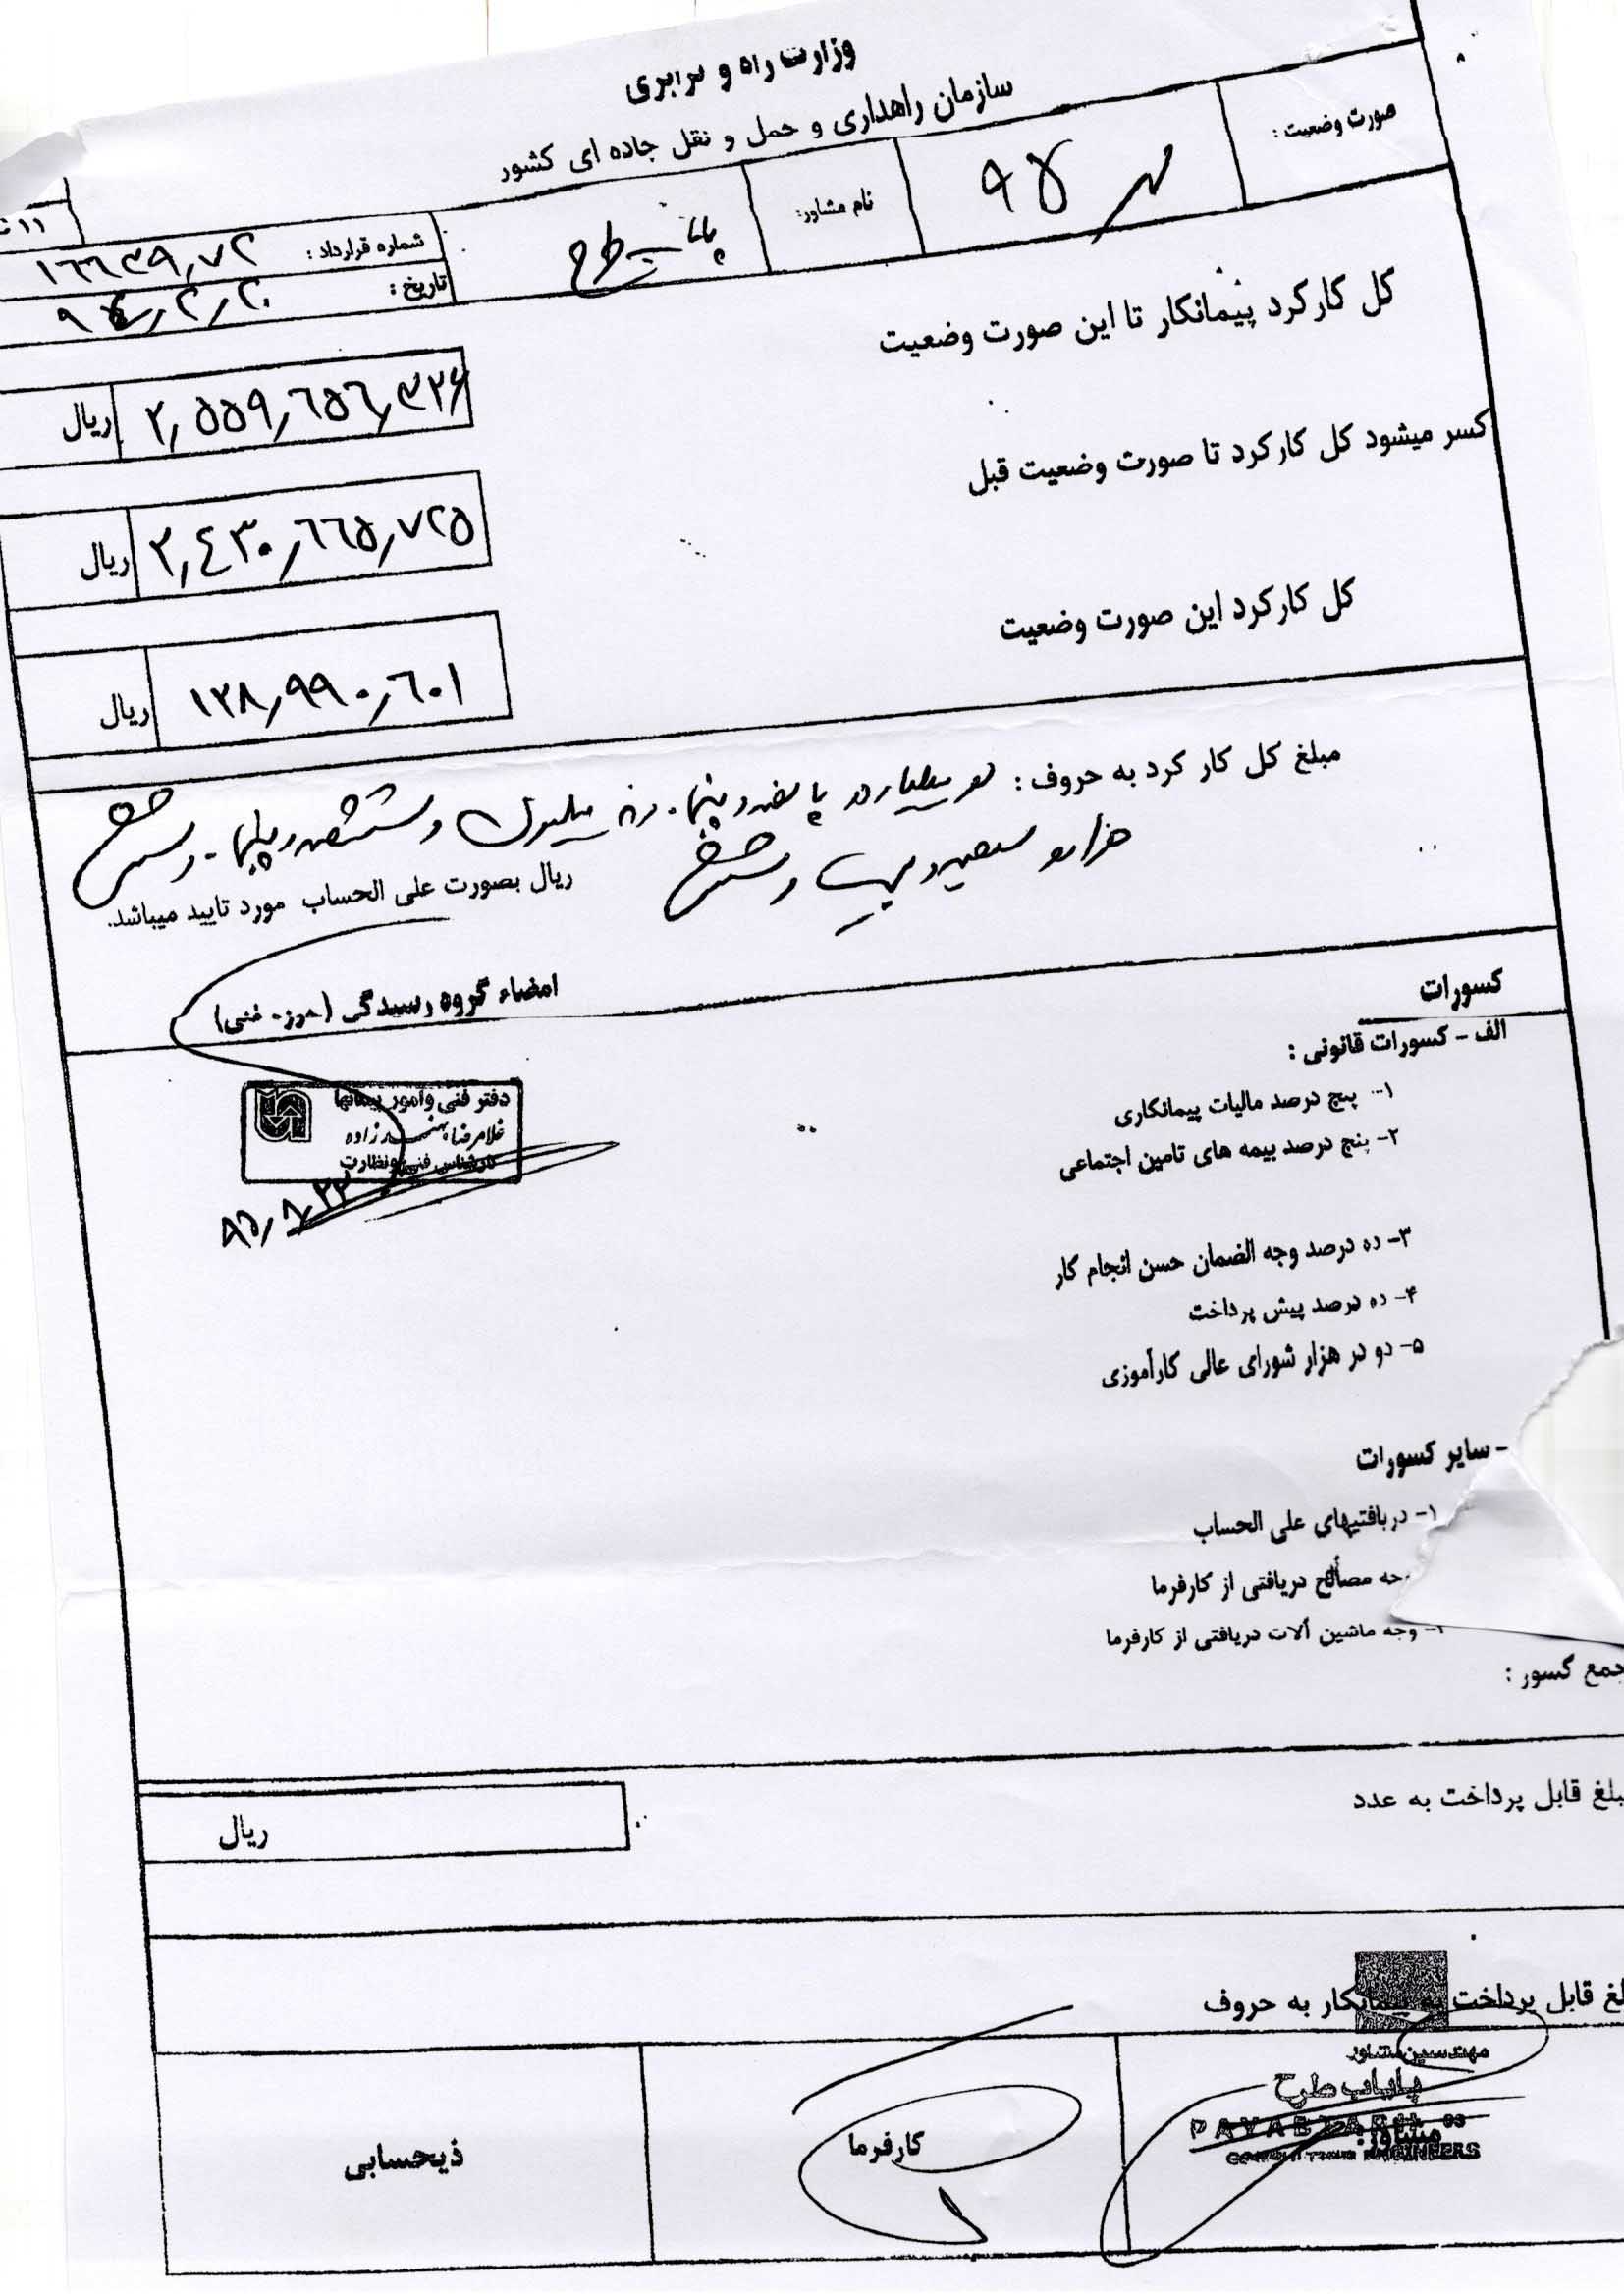 وزارت راه و ترابری
سازمان راهداری و حمل و نقل جاده ای کشور
صورت وضعیت :
مهر ۹۵
نام مشاور:
پایاب طرح
شماره قرارداد :
۱۶۶۳۹٫۷۲
تاریخ :
کل کارکرد پیمانکار تا این صورت وضعیت
۲٫۵۵۹٫۶۵۶٫۳۲۶ ریال
کسر میشود کل کارکرد تا صورت وضعیت قبل
۲٫۴۳۰٫۶۶۵٫۷۲۵ ریال
کل کارکرد این صورت وضعیت
۱۲۸٫۹۹۰٫۶۰۱ ریال
مبلغ کل کار کرد به حروف : دو میلیارد پانصد و پنجاه و نه میلیون و ششصد و پنجاه و شش
هزار و سیصد و بیست و شش
ریال بصورت علی الحساب مورد تایید میباشد.
کسورات
امضاء گروه رسیدگی (حوزه فنی)
الف - کسورات قانونی :
۱- پنج درصد مالیات پیمانکاری
۲- پنج درصد بیمه های تامین اجتماعی
دفتر فنی و امور پیمانها
غلامرضا
کارشناس فنی و نظارت
۳- ده درصد وجه الضمان حسن انجام کار
۴- ده درصد پیش پرداخت
۵- دو در هزار شورای عالی کارآموزی
- سایر کسورات
۱- دریافتیهای علی الحساب
مصالح دریافتی از کارفرما
وجه ماشین آلات دریافتی از کارفرما
جمع کسور :
قابل پرداخت به عدد
ریال
قابل پرداخت به پیمانکار به حروف
مهندسین مشاور
پایاب طرح
مشاور:
CONSULTING ENGINEERS
کارفرما
ذیحسابی